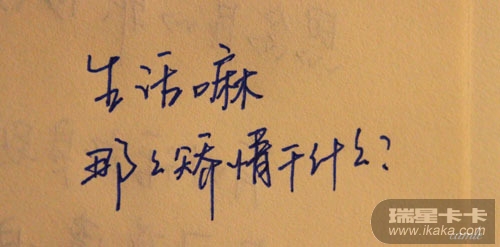 生活嘛
那么矫情干什么？
瑞星卡卡
www.ikaka.com